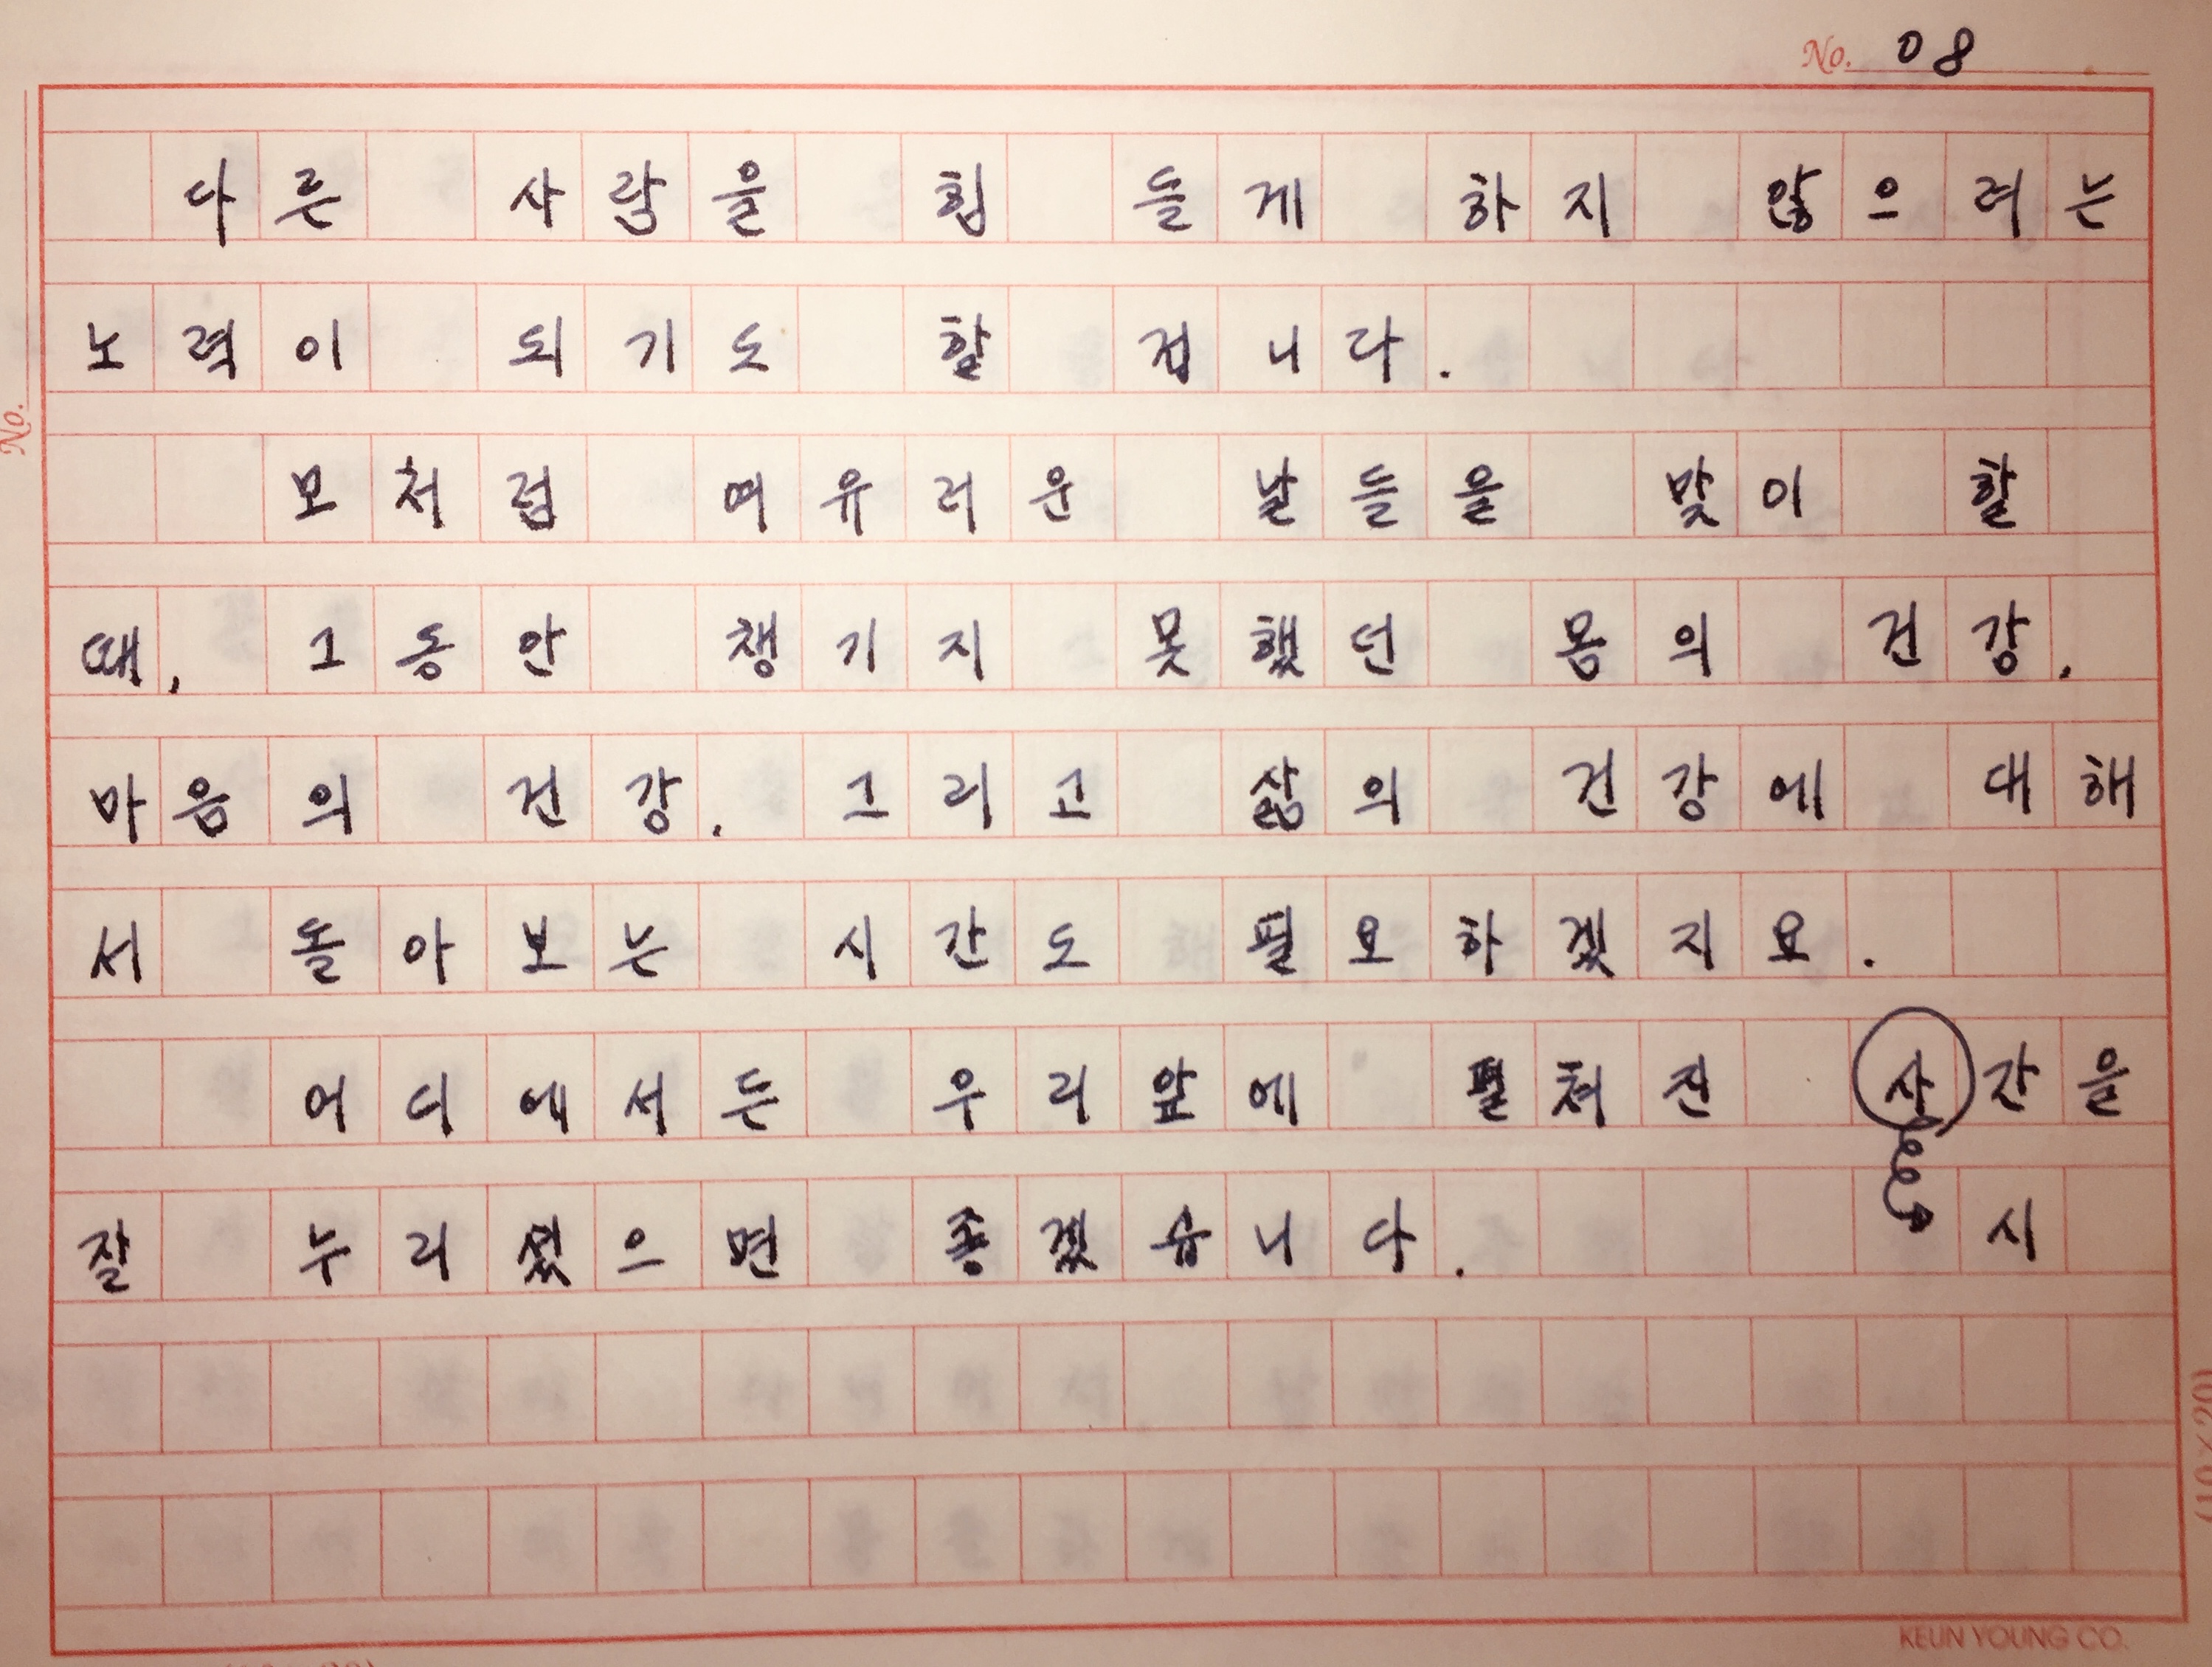 No. 08
No.
다른 사람을 힘 들게 하지 않으려는
노력이 되기도 할 겁니다.
모처럼 여유러운 날들을 맞이 할
때, 그동안 챙기지 못했던 몸의 건강,
마음의 건강. 그리고 삶의 건강에 대해
서 돌아보는 시간도 필요하겠지요.
어디에서든 우리앞에 펼쳐진 사간을
시
잘 누리셨으면 좋겠습니다.
(10×20)
KEUN YOUNG CO.